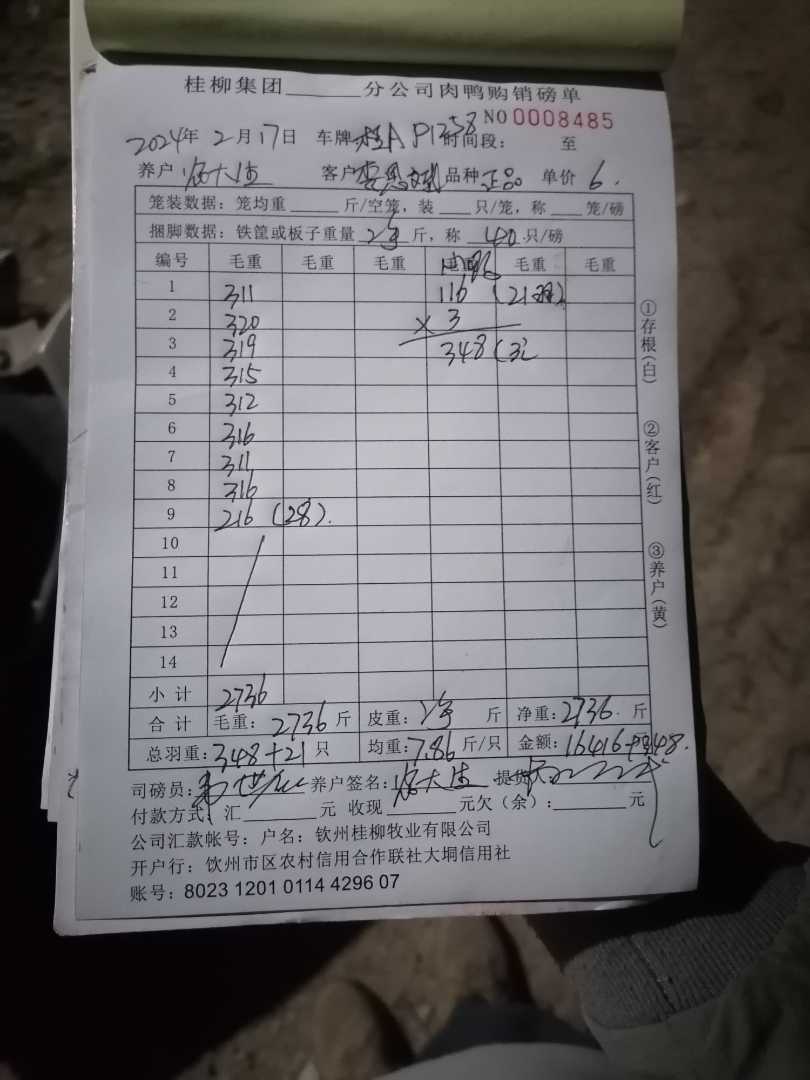 桂柳集团______分公司肉鸭购销磅单
NO 0008485
2024年 2月17日 车牌:桂A P1258 时间段: 至
养户: 客户 品种 正品 单价 6.
笼装数据: 笼均重____斤/空笼, 装___只/笼, 称___笼/磅
捆脚数据: 铁筐或板子重量 斤, 称 40 只/磅
编号 毛重 毛重 毛重 毛重 毛重
1 311 116 (21
2 320 × 3
3 319 348 (3
4 315
5 312
6 316
7 311
8 316
9 216 (28).
10
11
12
13
14
小 计 2736
合 计 毛重: 2736 斤 皮重: 斤 净重: 2736. 斤
总羽重: 348+21 只 均重: 7.86 斤/只 金额: 16416
司磅员: 养户签名: 提货人
付款方式: 汇______元 收现______元欠(余):______元
公司汇款帐号: 户名: 钦州桂柳牧业有限公司
开户行: 饮州市区农村信用合作联社大垌信用社
账号: 8023 1201 0114 4296 07
①存根(白)
②客户(红)
③养户(黄)